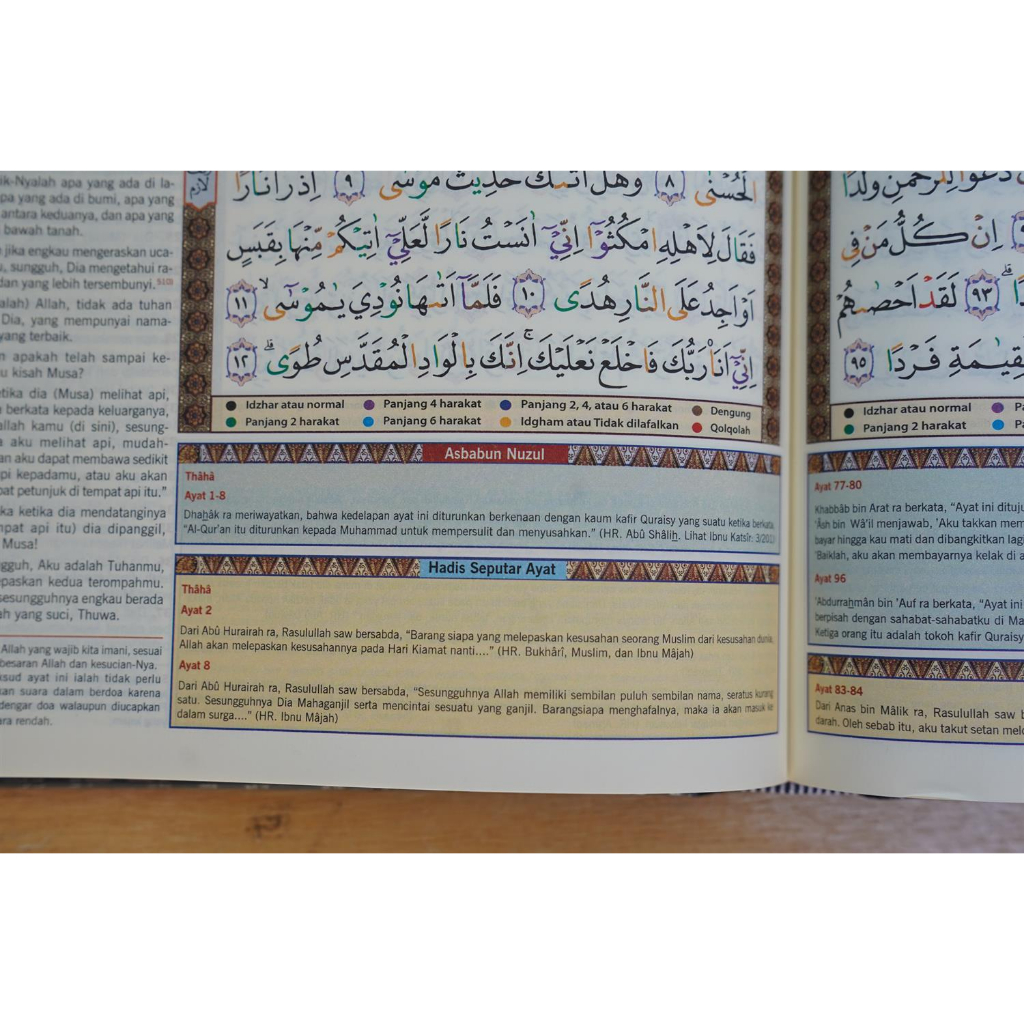 ik-Nyalah apa yang ada di la-
pa yang ada di bumi, apa yang
antara keduanya, dan apa yang
bawah tanah.
jika engkau mengeraskan uca-
, sungguh, Dia mengetahui ra-
dan yang lebih tersembunyi.⁵¹⁰⁾
alah) Allah, tidak ada tuhan
Dia, yang mempunyai nama-
yang terbaik.
apakah telah sampai ke-
u kisah Musa?
tika dia (Musa) melihat api,
berkata kepada keluarganya,
allah kamu (di sini), sesung-
a aku melihat api, mudah-
an aku dapat membawa sedikit
pi kepadamu, atau aku akan
pat petunjuk di tempat api itu."
ka ketika dia mendatanginya
mpat api itu) dia dipanggil,
Musa!
gguh, Aku adalah Tuhanmu,
epaskan kedua terompahmu.
sesungguhnya engkau berada
ah yang suci, Thuwa.
Allah yang wajib kita imani, sesuai
besaran Allah dan kesucian-Nya.
ksud ayat ini ialah tidak perlu
kan suara dalam berdoa karena
dengar doa walaupun diucapkan
ara rendah.
لازم
الْحُسْنٰى ٨ وَهَلْ اَتٰىكَ حَدِيْثُ مُوْسٰى ٩ اِذْ رَاٰ نَارًا
فَقَالَ لِاَهْلِهِ امْكُثُوْٓا اِنِّيْٓ اٰنَسْتُ نَارًا لَّعَلِّيْٓ اٰتِيْكُمْ مِّنْهَا بِقَبَسٍ
اَوْ اَجِدُ عَلَى النَّارِ هُدًى ١٠ فَلَمَّآ اَتٰىهَا نُوْدِيَ يٰمُوْسٰٓى ۙ ١١
اِنِّيْٓ اَنَا۠ رَبُّكَ فَاخْلَعْ نَعْلَيْكَۚ اِنَّكَ بِالْوَادِ الْمُقَدَّسِ طُوًىۗ ١٢
Idzhar atau normal Panjang 4 harakat Panjang 2, 4, atau 6 harakat Dengung
Panjang 2 harakat Panjang 6 harakat Idgham atau Tidak dilafalkan Qolqolah
Asbabun Nuzul
Thâhâ
Ayat 1-8
Dhaẖâk ra meriwayatkan, bahwa kedelapan ayat ini diturunkan berkenaan dengan kaum kafir Quraisy yang suatu ketika berkata,
"Al-Qur'an itu diturunkan kepada Muhammad untuk mempersulit dan menyusahkan." (HR. Abû Shâliẖ. Lihat Ibnu Katsîr: 3/201)
Hadis Seputar Ayat
Thâhâ
Ayat 2
Dari Abû Hurairah ra, Rasulullah saw bersabda, "Barang siapa yang melepaskan kesusahan seorang Muslim dari kesusahan dunia,
Allah akan melepaskan kesusahannya pada Hari Kiamat nanti...." (HR. Bukhârî, Muslim, dan Ibnu Mâjah)
Ayat 8
Dari Abû Hurairah ra, Rasulullah saw bersabda, "Sesungguhnya Allah memiliki sembilan puluh sembilan nama, seratus kurang
satu. Sesungguhnya Dia Mahaganjil serta mencintai sesuatu yang ganjil. Barangsiapa menghafalnya, maka ia akan masuk ke
dalam surga...." (HR. Ibnu Mâjah)
دَعَوْا لِلرَّحْمٰنِ وَلَدًا
اِنْ كُلُّ مَنْ فِى
٩٣ لَقَدْ اَحْصٰىهُمْ
الْقِيٰمَةِ فَرْدًا ٩٥
Idzhar atau normal Pa
Panjang 2 harakat Pa
Ayat 77-80
Khabbâb bin Arat ra berkata, "Ayat ini dituju
'Âsh bin Wâ'il menjawab, 'Aku takkan mem
bayar hingga kau mati dan dibangkitkan lagi
'Baiklah, aku akan membayarnya kelak di a
Ayat 96
'Abdurraẖmân bin 'Auf ra berkata, "Ayat ini
berpisah dengan sahabat-sahabatku di Ma
Ketiga orang itu adalah tokoh kafir Quraisy
Ayat 83-84
Dari Anas bin Mâlik ra, Rasulullah saw b
darah. Oleh sebab itu, aku takut setan melo